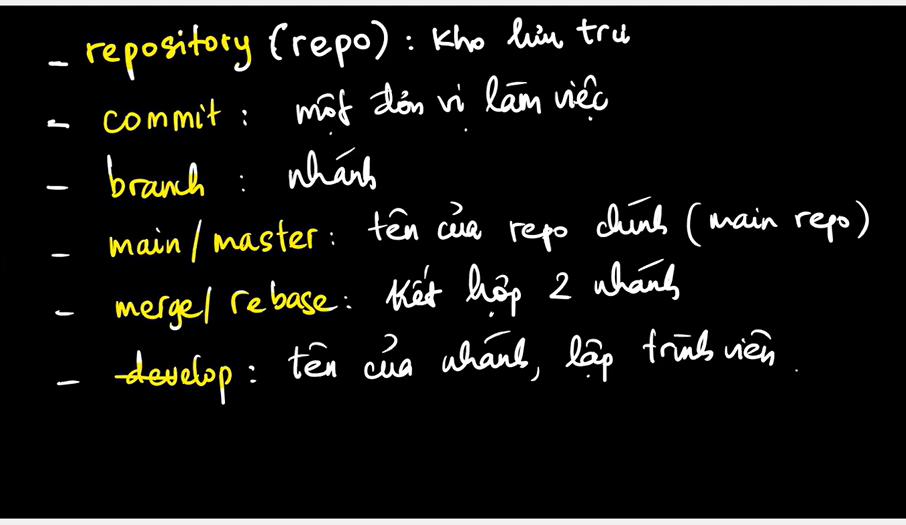 - repository (repo): Kho lưu trữ
- commit: một đơn vị làm việc
- branch: nhánh
- main/master: tên của repo chính (main repo)
- merge/rebase: Kết hợp 2 nhánh
- develop: tên của nhánh, lập trình viên.